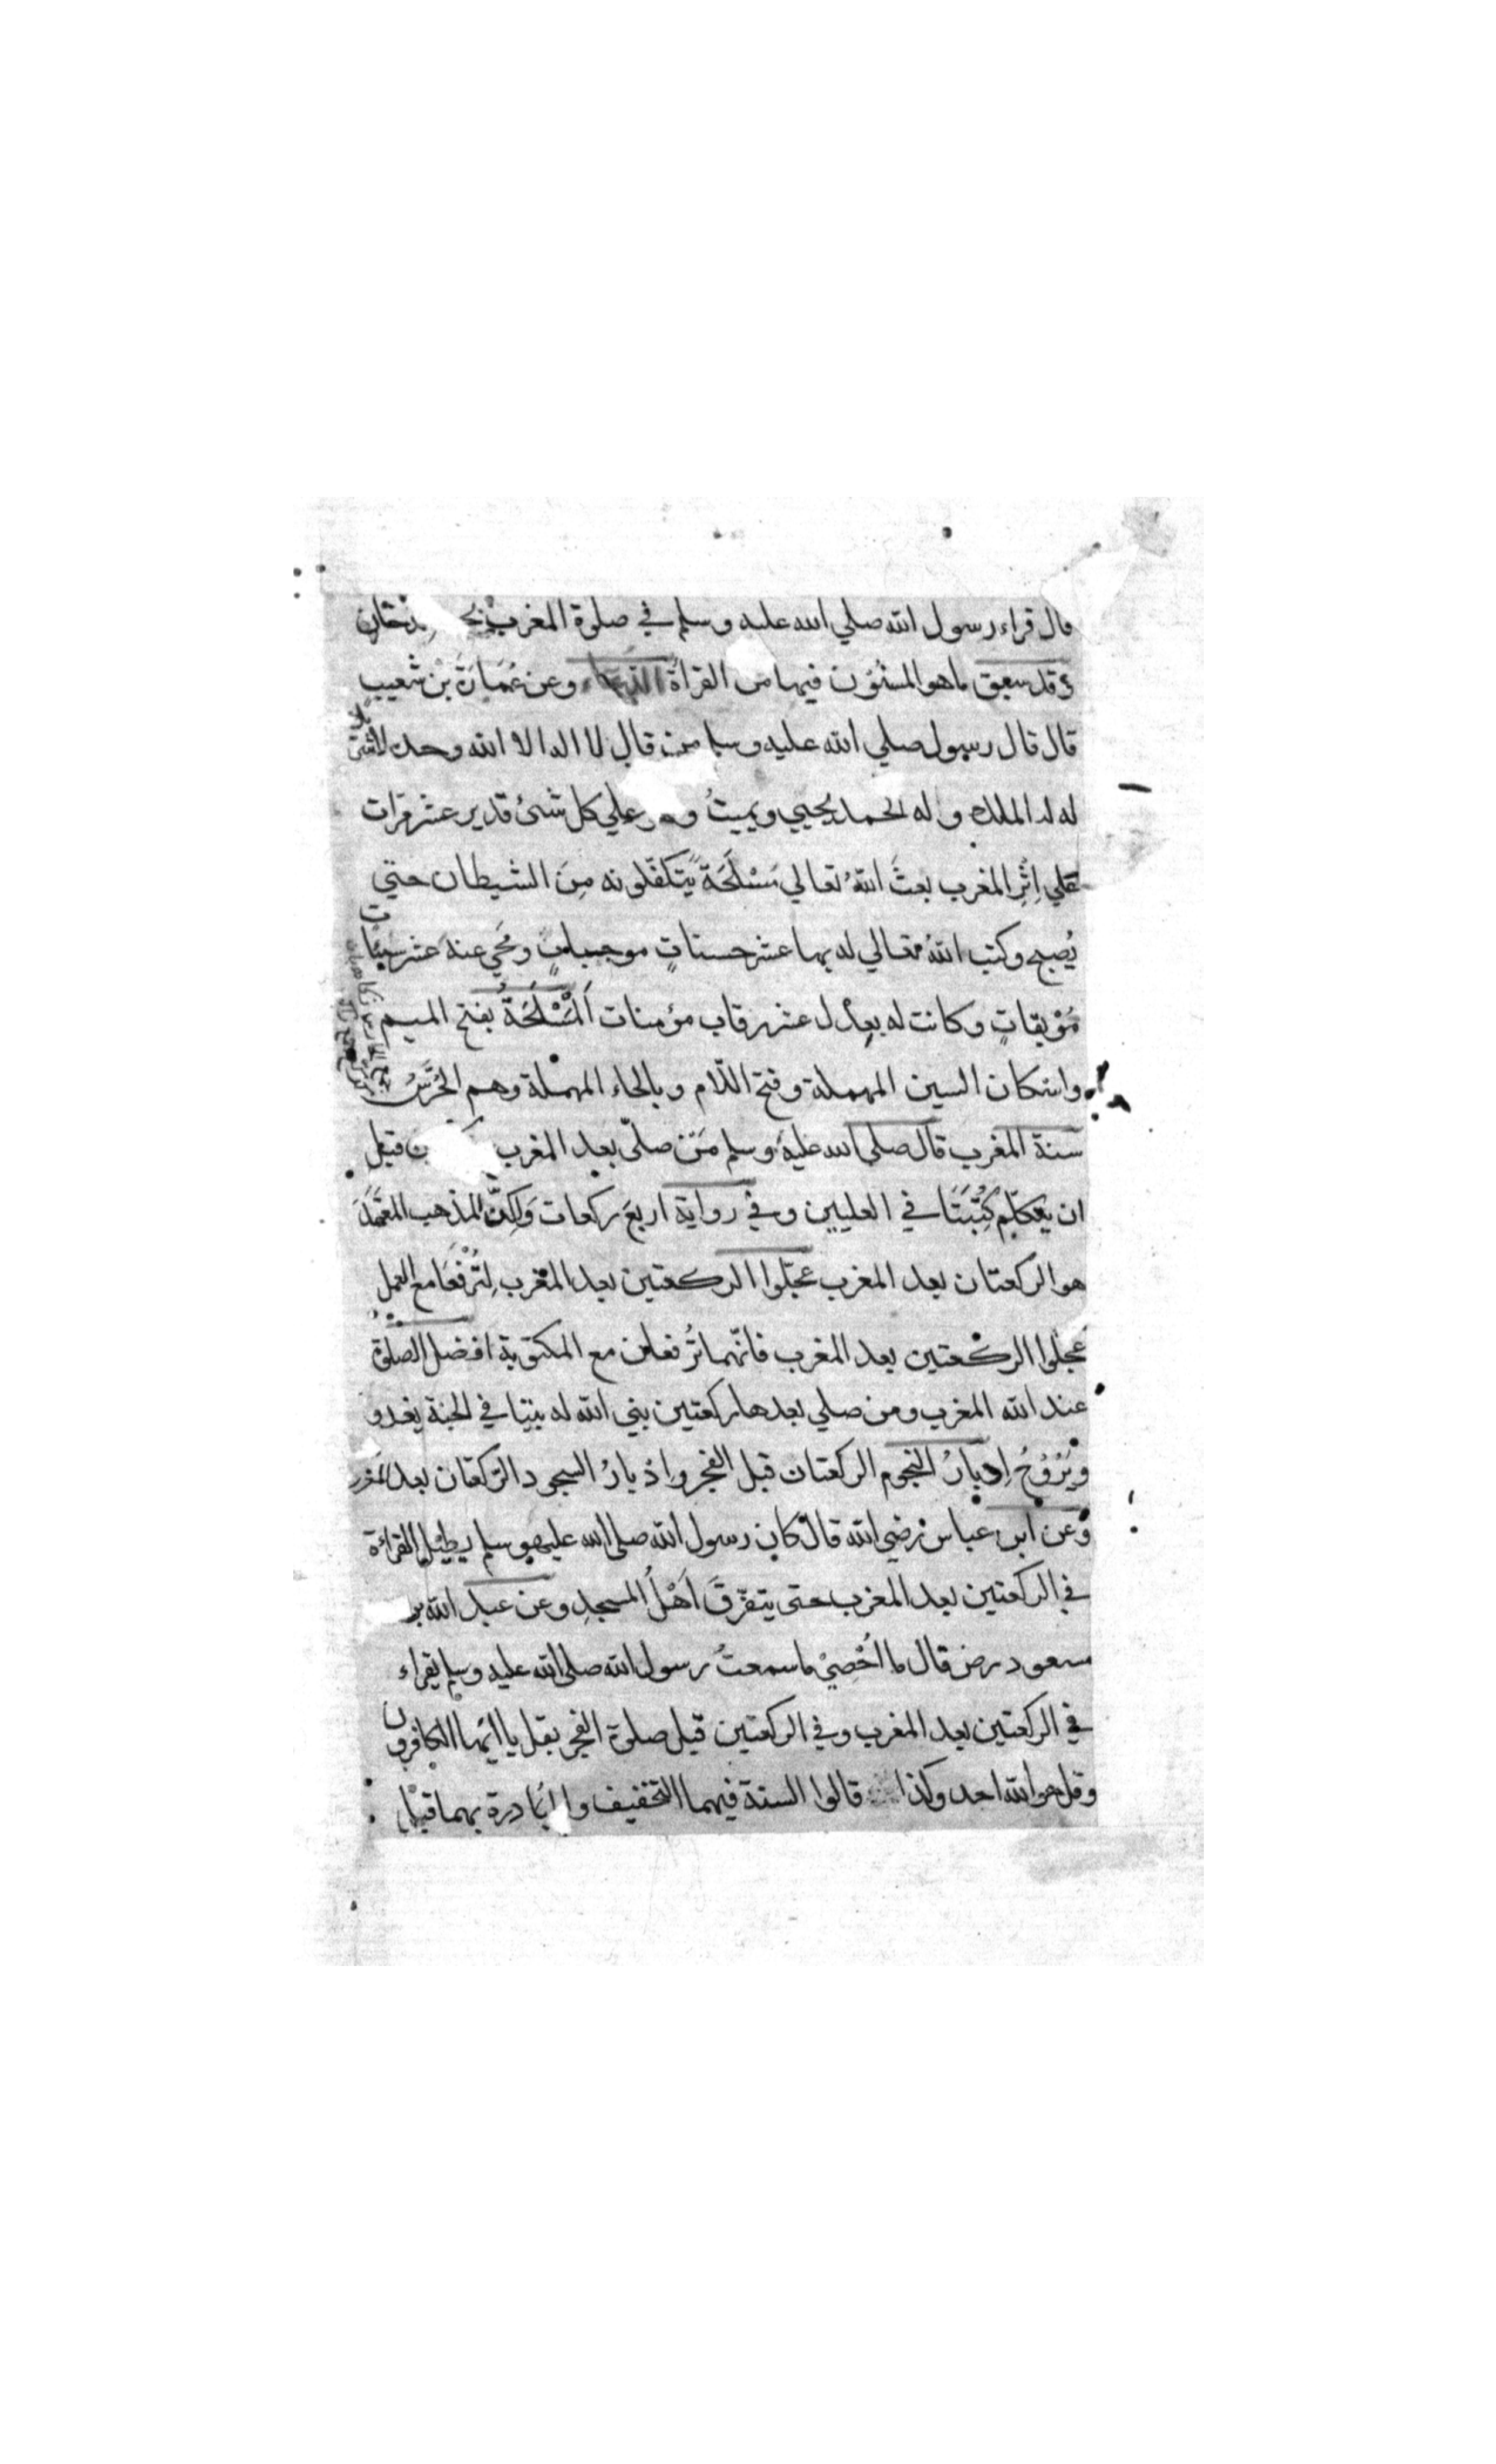 قال قراء رسول الله صلي الله عليه وسلم في صلوة المغرب دخان
وقد سبق ما هو المسنون فيها من القرأة وعن عُمَارَةَ بْن شعيبٍ
قال قال رسول صلي الله عليه وسلم من قال لا اله الا الله وحده لا شريك
له له الملك وله الحمد يحيي ويميتُ وهو علي كل شئ قدير عشر مرّات
علي اِثْرِ المغرب بعثَ اللهُ تعالي مَسْلَحَةً يَتكفّلونه مِنَ الشيطان حتي
يُصبح وكتب اللهُ تعالي له بها عشر حسناتٍ موجباتٍ ومُحي عنه عشر سيئات
مُوْبِقاتٍ وكانت له بعِدْل عشر رقاب مؤمنات اَلْمَسْلَحَةُ بفتح الميم
واسكان السين المهملة وفتح اللّام وبالحاء المهملة وهم الحُرَّسُ
سنة المغرب قال صلي الله عليه وسلم مَنْ صلّي بعد المغرب قبل
ان يتكلّم كُتِبَتَا في العليين وفي رواية اربعَ ركعات وَلكِنَّ المذهب المعتمَدَ
هو الركعتان بعد المغرب عجّلوا الركعتين بعد المغرب لِتُرْفَعَا مع العمل
عجّلوا الركعتين بعد المغرب فانّهما تُرفعان مع المكتوبة افضل الصلوة
عند الله المغرب ومن صلي بعدها ركعتين بني الله له بيتا في الجنة يغدو
ويَرُوْحُ اِدبارُ النجوم الركعتان قبل الفجر وادبارُ السجود الركعتان بعد المغرب
وعن ابن عباس رضي الله قال كان رسول الله صلي الله عليه وسلم يطيل القراءة
في الركعتين بعد المغرب حتى يتفرّقَ اَهْلُ المسجدِ وعن عبد الله بن
مسعود رض قال ما اُحْصِيْ ما سمعتُ رسول الله صلي الله عليه وسلم يقراء
في الركعتين بعد المغرب وفي الركعتين قبل صلوة الفجر بقل يا ايّها الكافرون
وقل هو الله احد وكذا قالوا السنة فيهما التخفيف والمُبَادرة بهما قبل